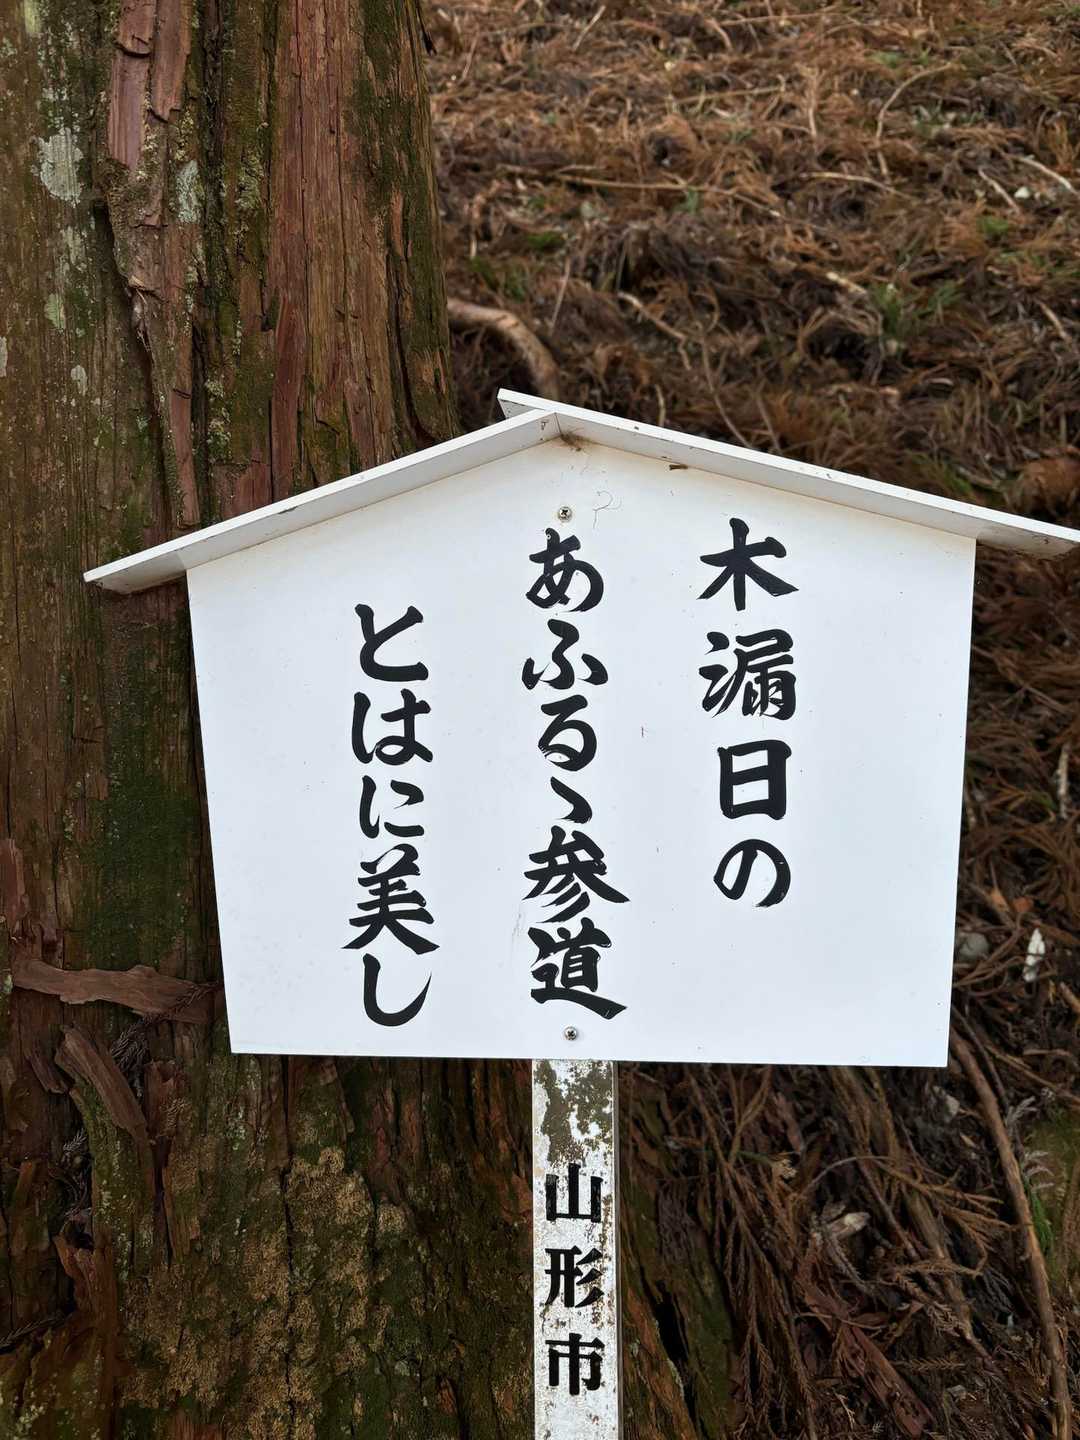 木漏日の
あふるゝ参道
とはに美し
山形市